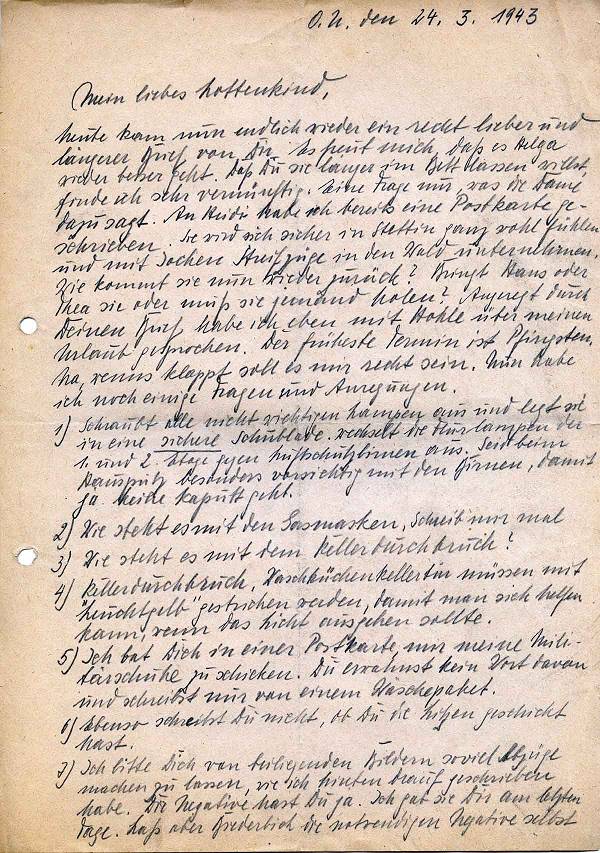 O.U. den 24. 3. 1943
Mein liebes Lottenkind,
heute kam nun endlich wieder ein recht lieber und
längerer Brief von Dir. Es freut mich, daß es Helga
wieder besser geht. Daß Du sie länger im Bett lassen willst,
finde ich sehr vernünftig. Eine Frage nur, was die Dame
dazu sagt. An Heidi habe ich bereits eine Postkarte ge-
schrieben. Sie wird sich sicher in Stettin ganz wohl fühlen
und mit Jochen Streifzüge in den Wald unternehmen.
Wie kommt sie nun wieder zurück? Bringt Hans oder
Thea sie oder muß sie jemand holen? Angeregt durch
Deinen Brief habe ich eben mit Hohle über meinen
Urlaub gesprochen. Der früheste Termin ist Pfingsten.
Na, wenns klappt soll es mir recht sein. Nun habe
ich noch einige Fragen und Anregungen.
1) Schraubt alle nicht wichtigen Lampen aus und legt sie
in eine sichere Schublade. Wechselt die Flurlampen der
1. und 2. Etage gegen Luftschutzbirnen aus. Seid beim
Hausputz besonders vorsichtig mit den Birnen, damit
ja keine kaputt geht.
2) Wie steht es mit den Gasmasken, schreib mir mal
3) Wie steht es mit dem Kellerdurchbruch?
4) Kellerdurchbruch, Waschküchenkellertür müssen mit
"Leuchtgelb" gestrichen werden, damit man sich helfen
kann, wenn das Licht ausgehen sollte.
5) Ich bat Dich in einer Postkarte, mir meine Mili-
tärschuhe zu schicken. Du erwähnst kein Wort davon
und schreibst nur von einem Wäschepaket.
6) Ebenso schreibst Du nicht, ob Du die geschickt
hast.
7) Ich bitte Dich von beiliegenden Bildern soviel Abzüge
machen zu lassen, wie ich hinten drauf geschrieben
habe. Die Negative hast Du ja. Ich gab sie Dir am letzten
Tage. Laß aber die notwendigen Negative selbst